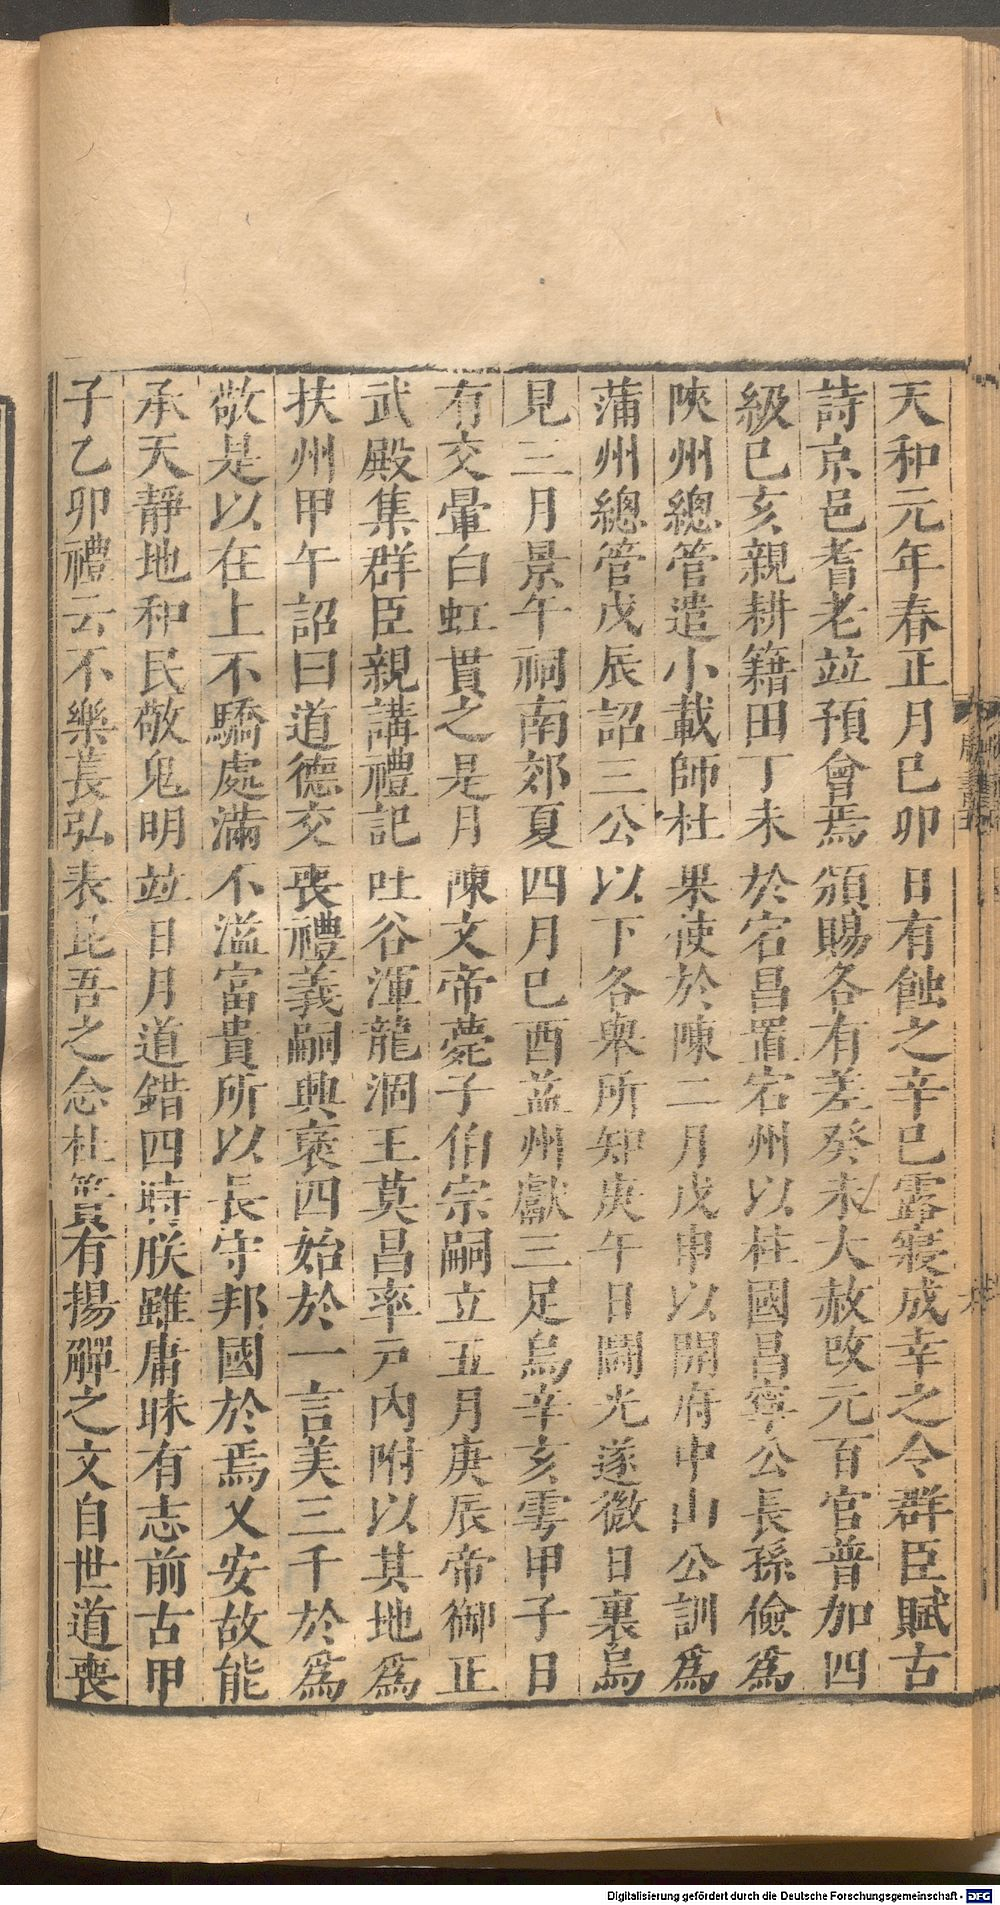 天和元年春正月己卯日有蝕之辛巳露寢成幸之令群臣賦古
詩京邑耆老竝預會焉頒賜各有差癸未大赦改元百官普加四
級己亥親耕籍田丁未於宕昌置宕州以柱國昌寧公長孫儉為
陜州總管遣小載師杜杲使於陳二月戊申以開府中山公訓為
蒲州總管戊辰詔三公以下各舉所知庚午日鬭光遂微日裏烏
見三月景午祠南郊夏四月己酉益州獻三足烏辛亥雩甲子日
有交暈白虹貫之是月陳文帝薨子伯宗嗣立五月庚辰帝御正
武殿集群臣親講禮記吐谷渾龍涸王莫昌率戸內附以其地為
扶州甲午詔曰道德交喪禮義嗣興褒四始於一言美三千於為
敬是以在上不驕處滿不溢富貴所以長守邦國於焉又安故能
承天靜地和民敬鬼明竝日月道錯四時朕雖庸昧有志前古甲
子乙卯禮云不樂萇弘表昆吾之念杜簣有揚觶之文自世道喪
Digitalisierung gefördert durch die Deutsche Forschungsgemeinschaft - DFG